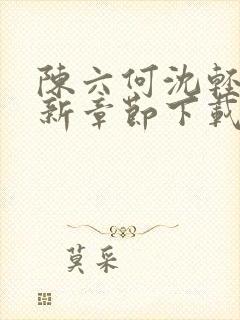 陳六何沈輕
新章節下載
莫采